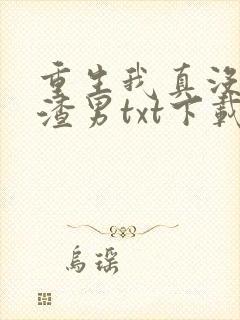 重生我真没
渣男txt下载
乌瑶